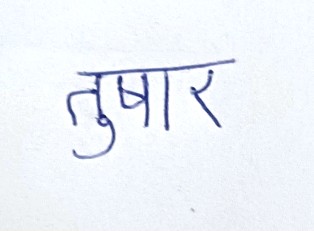 तुषार